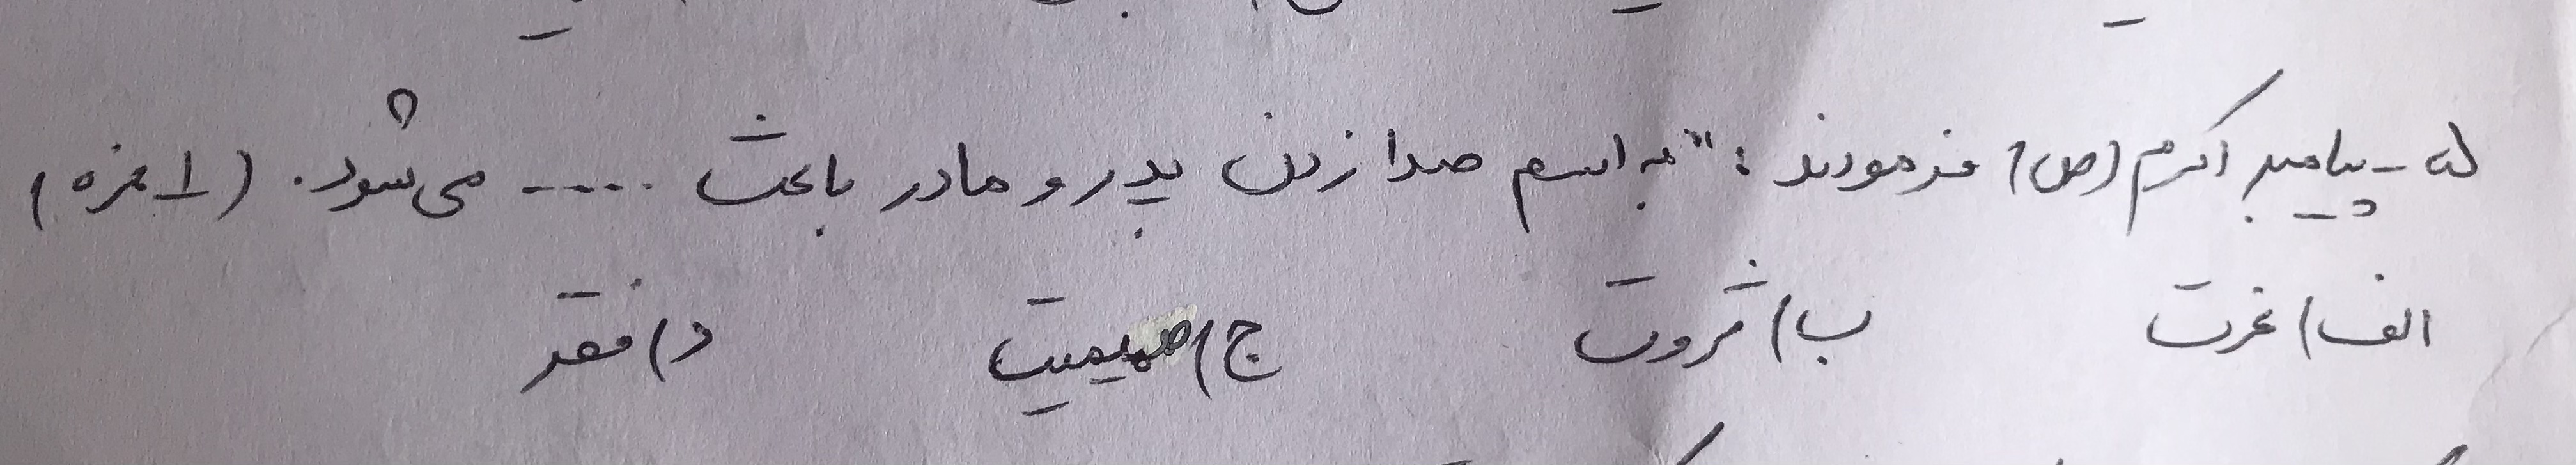 ۵- پیامبر اکرم (ص) فرمودند: "به اسم صدا زدن پدر و مادر باعث ..... می‌شود. (۱ نمره)
الف) غرت ب) ثروت ج) صمیمیت د) فقر